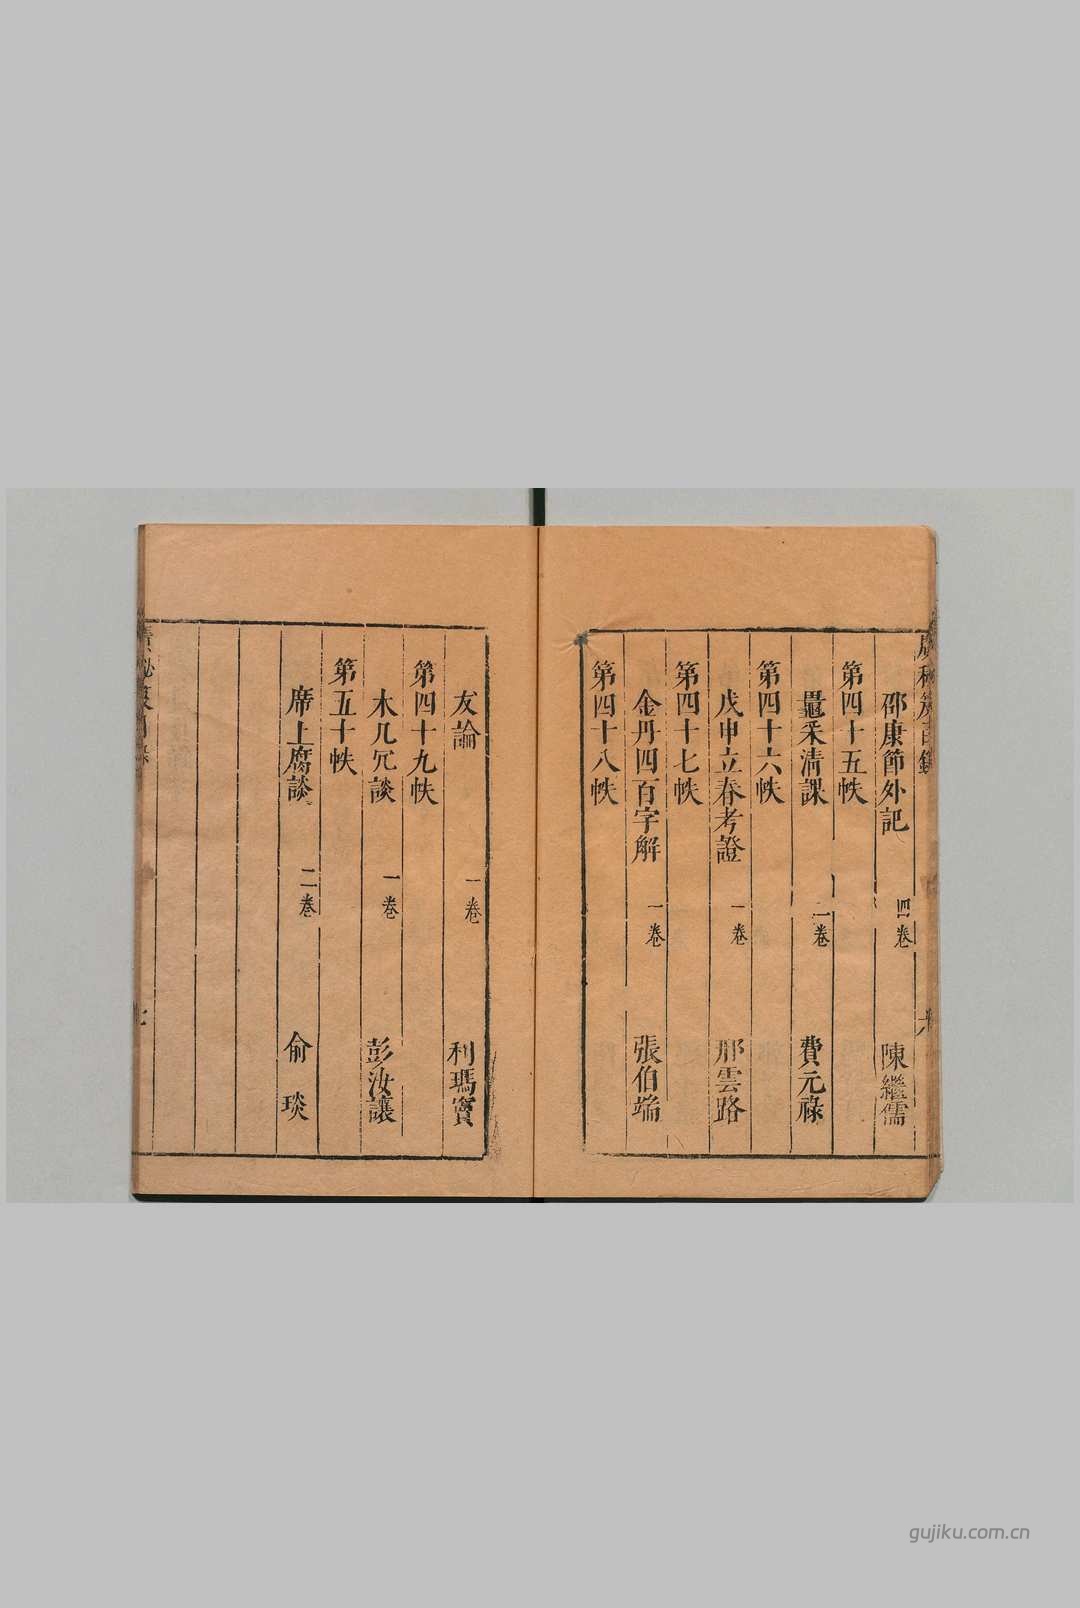 邵康節外記 四卷 陳繼儒
第四十五帙
鼂采清課 二卷 費元祿
第四十六帙
戊申立春考證 一卷 邢雲路
第四十七帙
金丹四百字解 一卷 張伯端
第四十八帙
友論 一卷 利瑪竇
第四十九帙
木几冗談 一卷 彭汝讓
第五十帙
席上腐談 二卷 俞琰
gujiku.com.cn